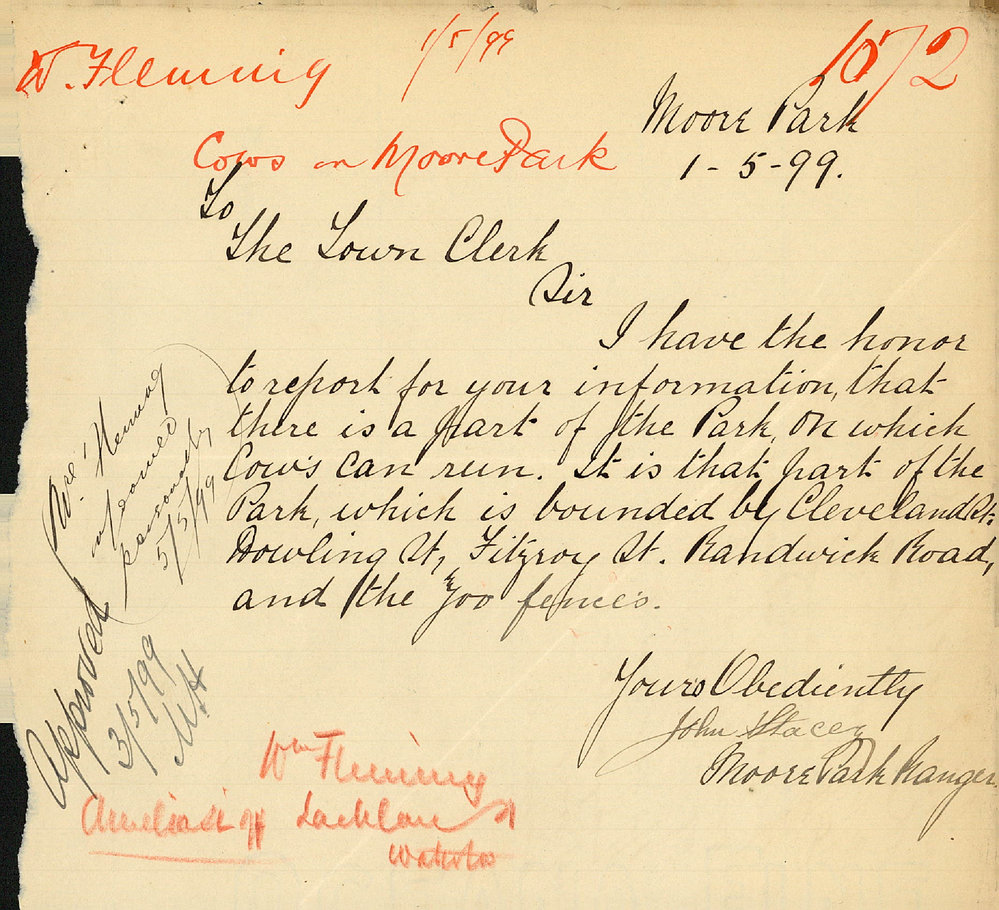 W. Fleming 1/5/99 1072
Cows on Moore Park
Moore Park
1-5-99.
To
The Town Clerk
Sir
I have the honor
to report for your information, that
there is a part of the Park, on which
Cow's can run. It is that part of the
Park, which is bounded by Cleveland St.
Dowling St, Fitzroy St. Randwick Road,
and the Zoo fence's.
Your's Obediently
John Stacey
Moore Park Ranger.
Approved
3/5/99
Fleming
informed
personally
5/5/99
Wm Fleming
Amelia St off Lachlan St
Waterloo